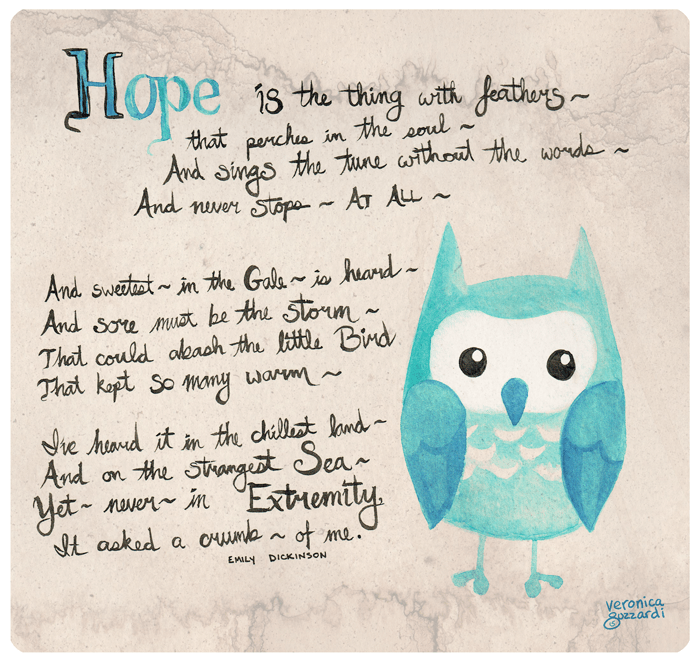 Hope is the thing with feathers ~
that perches in the soul ~
And sings the tune without the words ~
And never stops ~ At All ~
And sweetest ~ in the Gale ~ is heard ~
And sore must be the storm ~
That could abash the little Bird
That kept so many warm ~
I've heard it in the chillest land ~
And on the strangest Sea ~
Yet ~ never ~ in Extremity,
It asked a crumb ~ of me.
EMILY DICKINSON
veronica
guzzardi